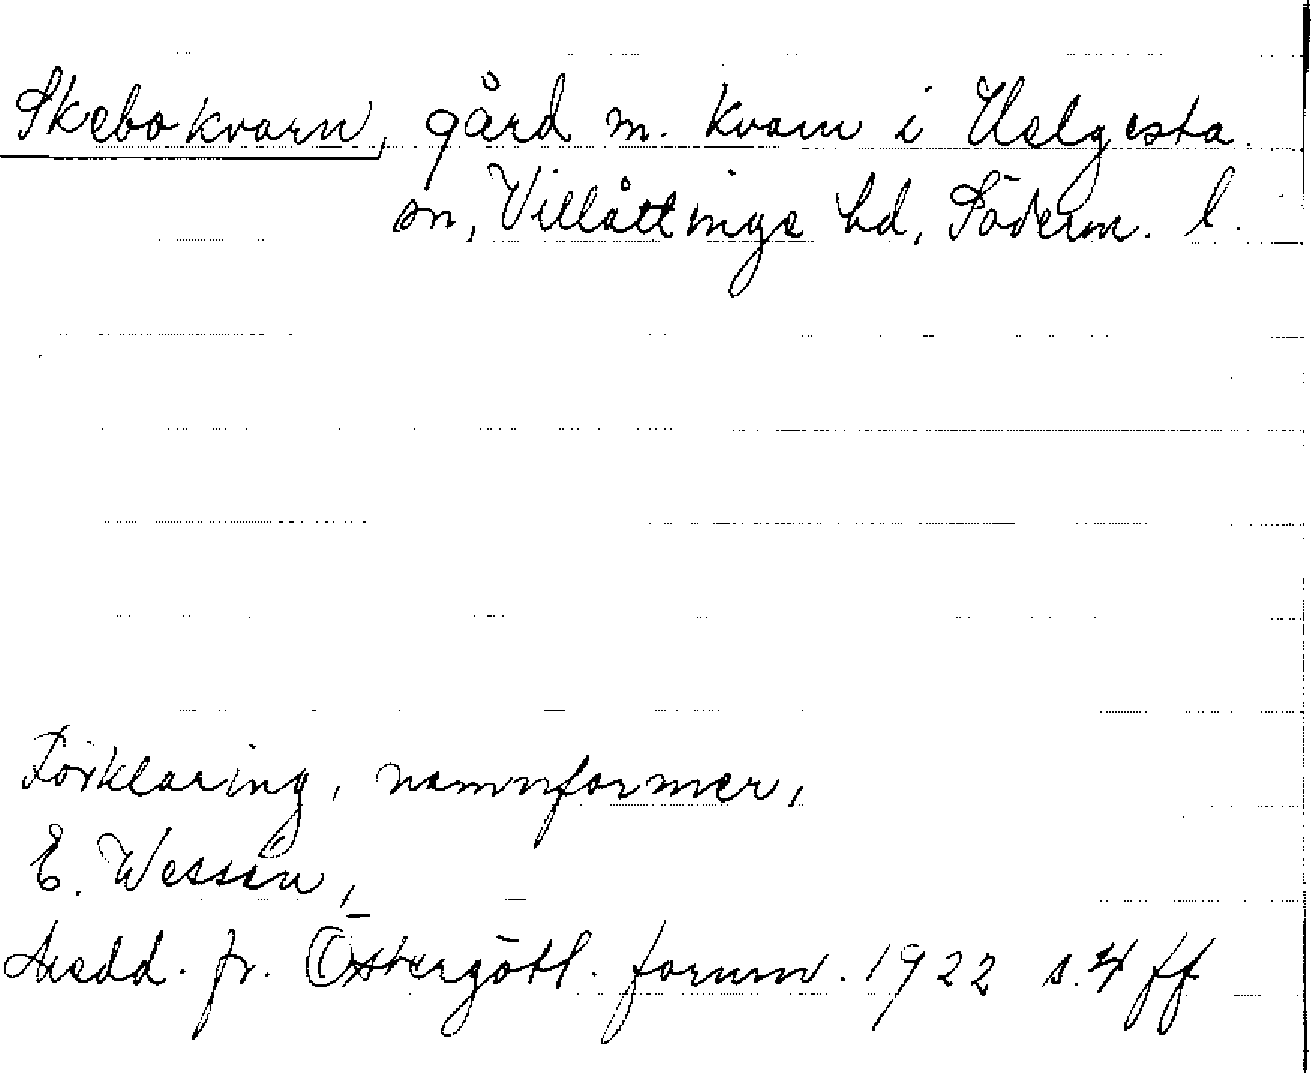 Skebokvarn, gård m. kvarn i Helgesta
sn, Villåttings hd, Söderm. l.
Förklaring, namnformer,
E. Wessén,
Medd. fr. Östergötl. fornm. 1922 s. 4 ff